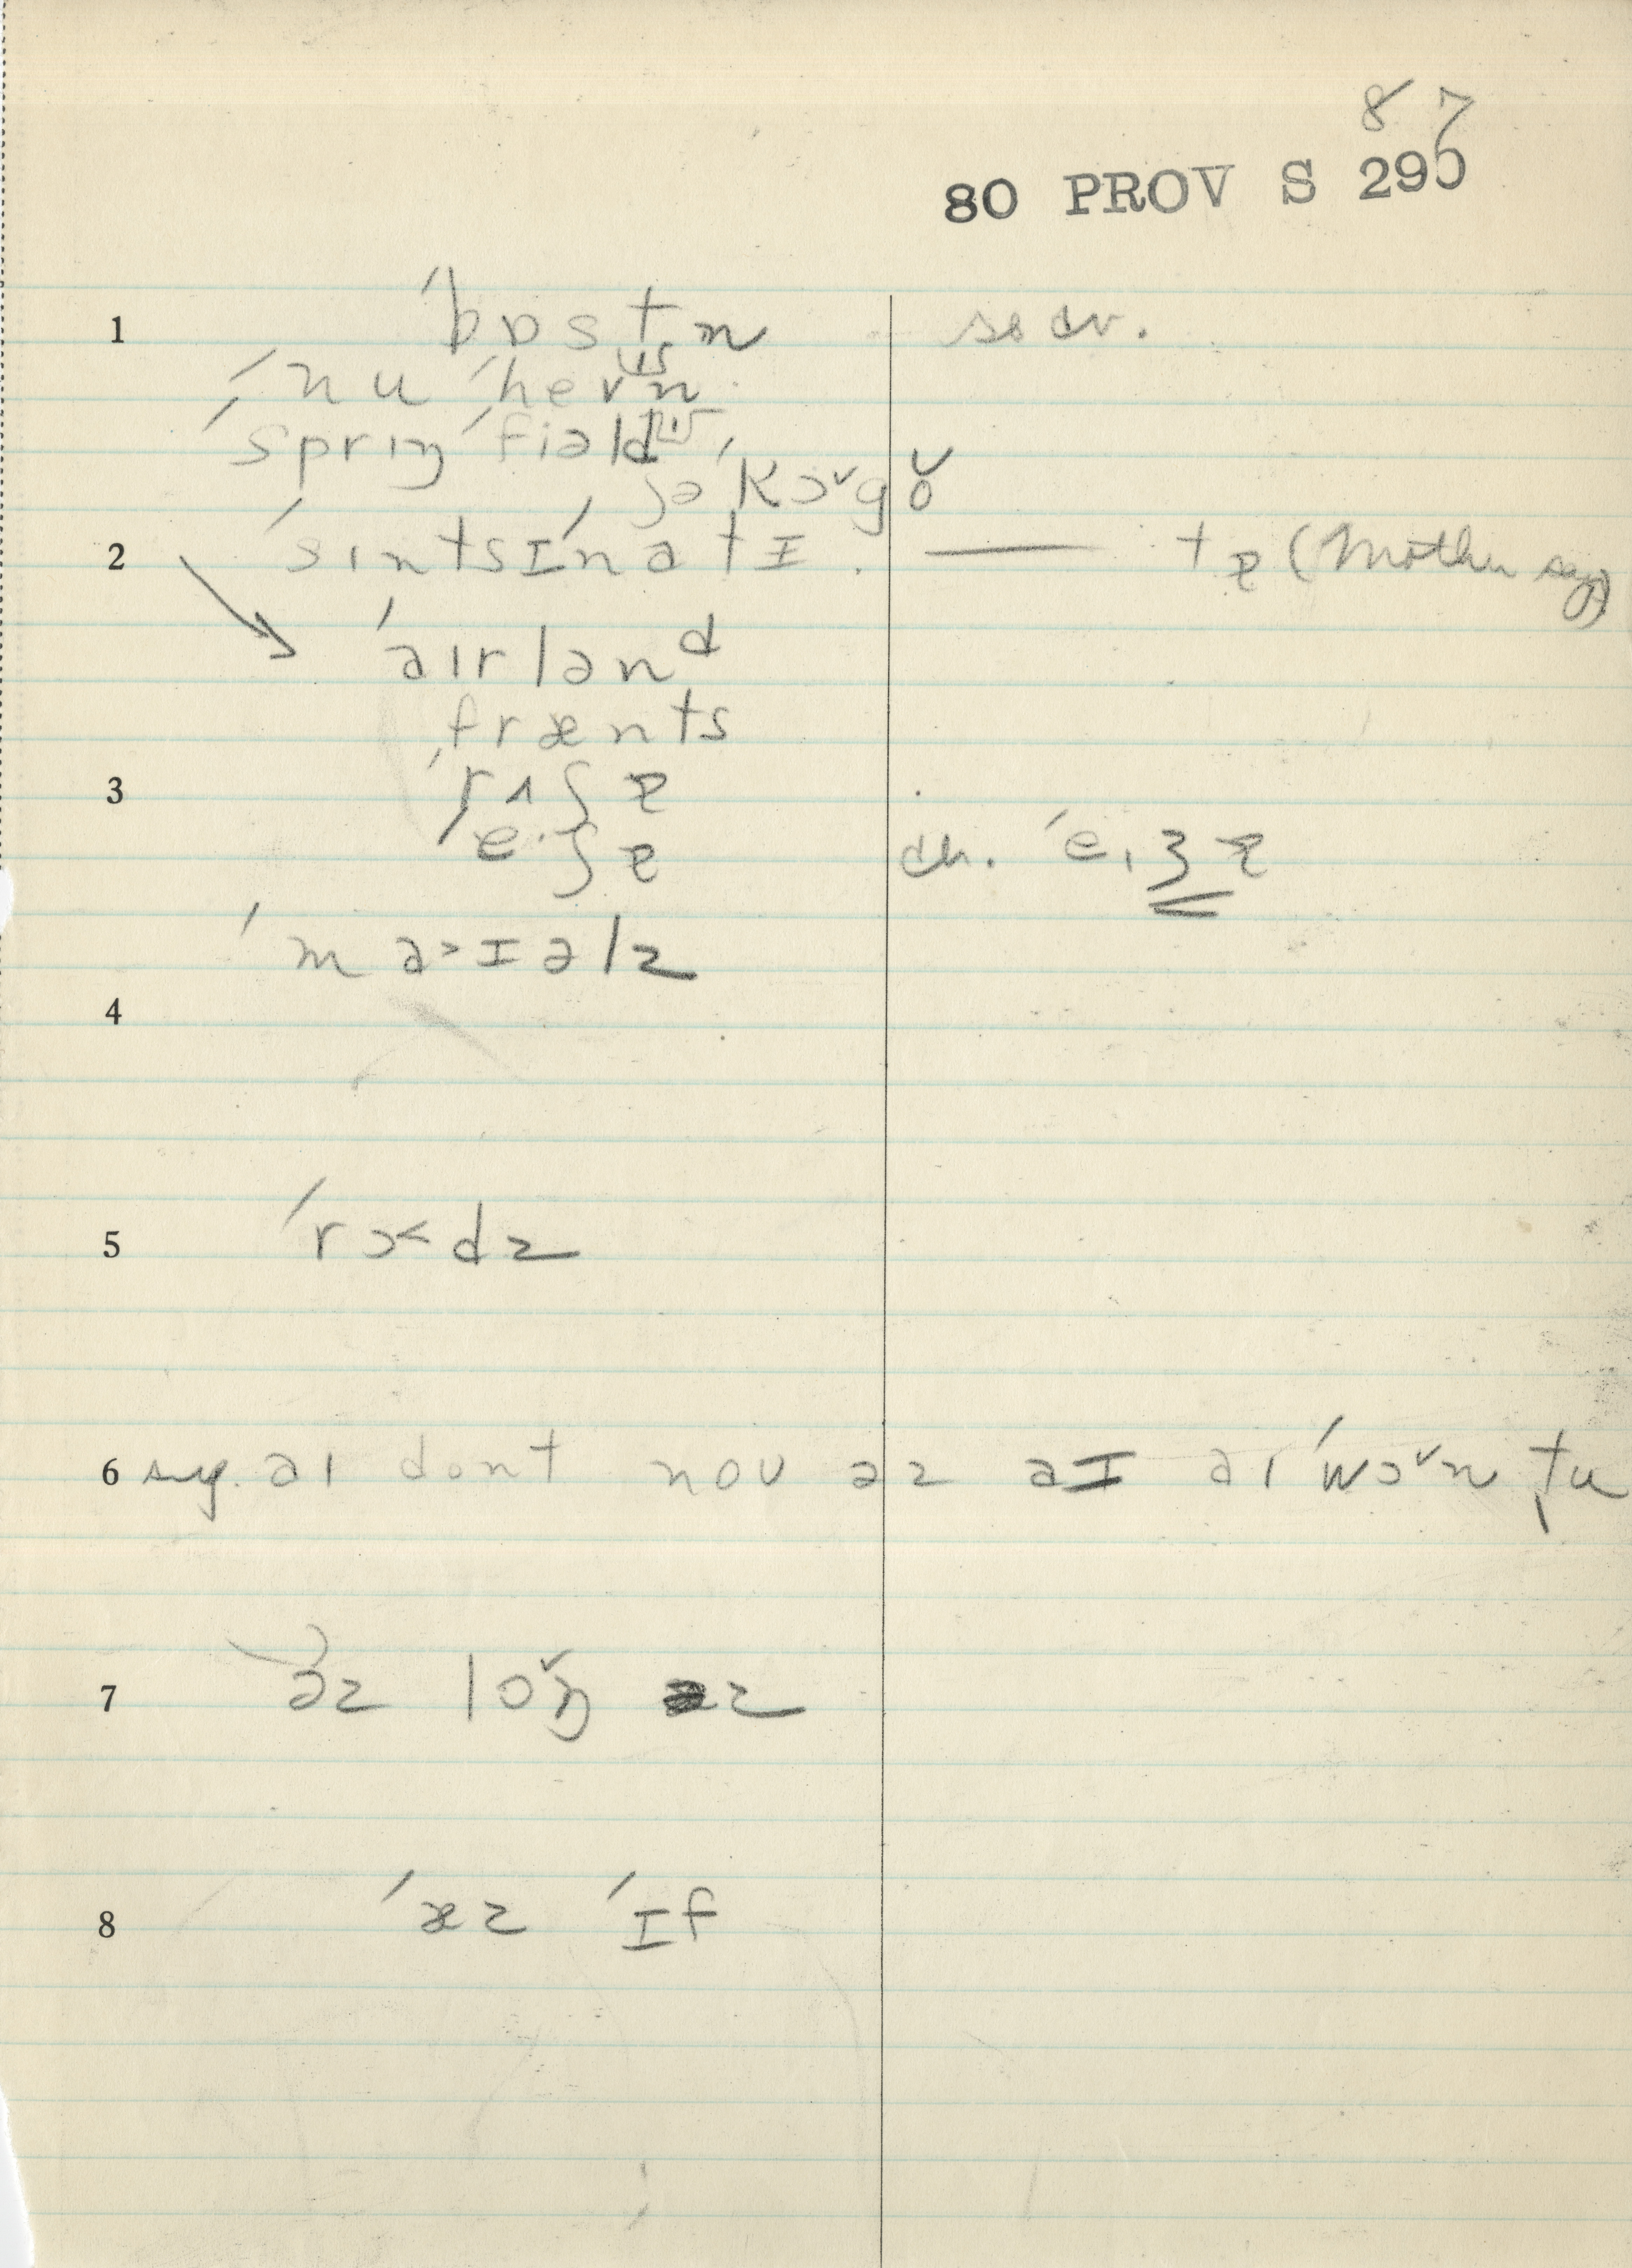 87
80 PROV S 290
1 ˈbɒstn̩
ˈnu ˈhevn
ˈsprɪŋˈfiəld
ʃəˈkɔˇgo̬
2 ˈsɪntsɪˈnatɪ. — tɚ (Mother says)
ˈaɪrlənᵈ
frænts
3 ˈrʌʃɚ
ˈe·ʃɚ ch. ˈeɪʒɚ
ˈma˃ɪəlz
4
5 ˈrɔ˂dz
6 aɪ dont noʊ əz aɪ aɪ ˈwɔˇn tu
7 əz lɒˇŋ əz
8 ˈæz ˈɪf